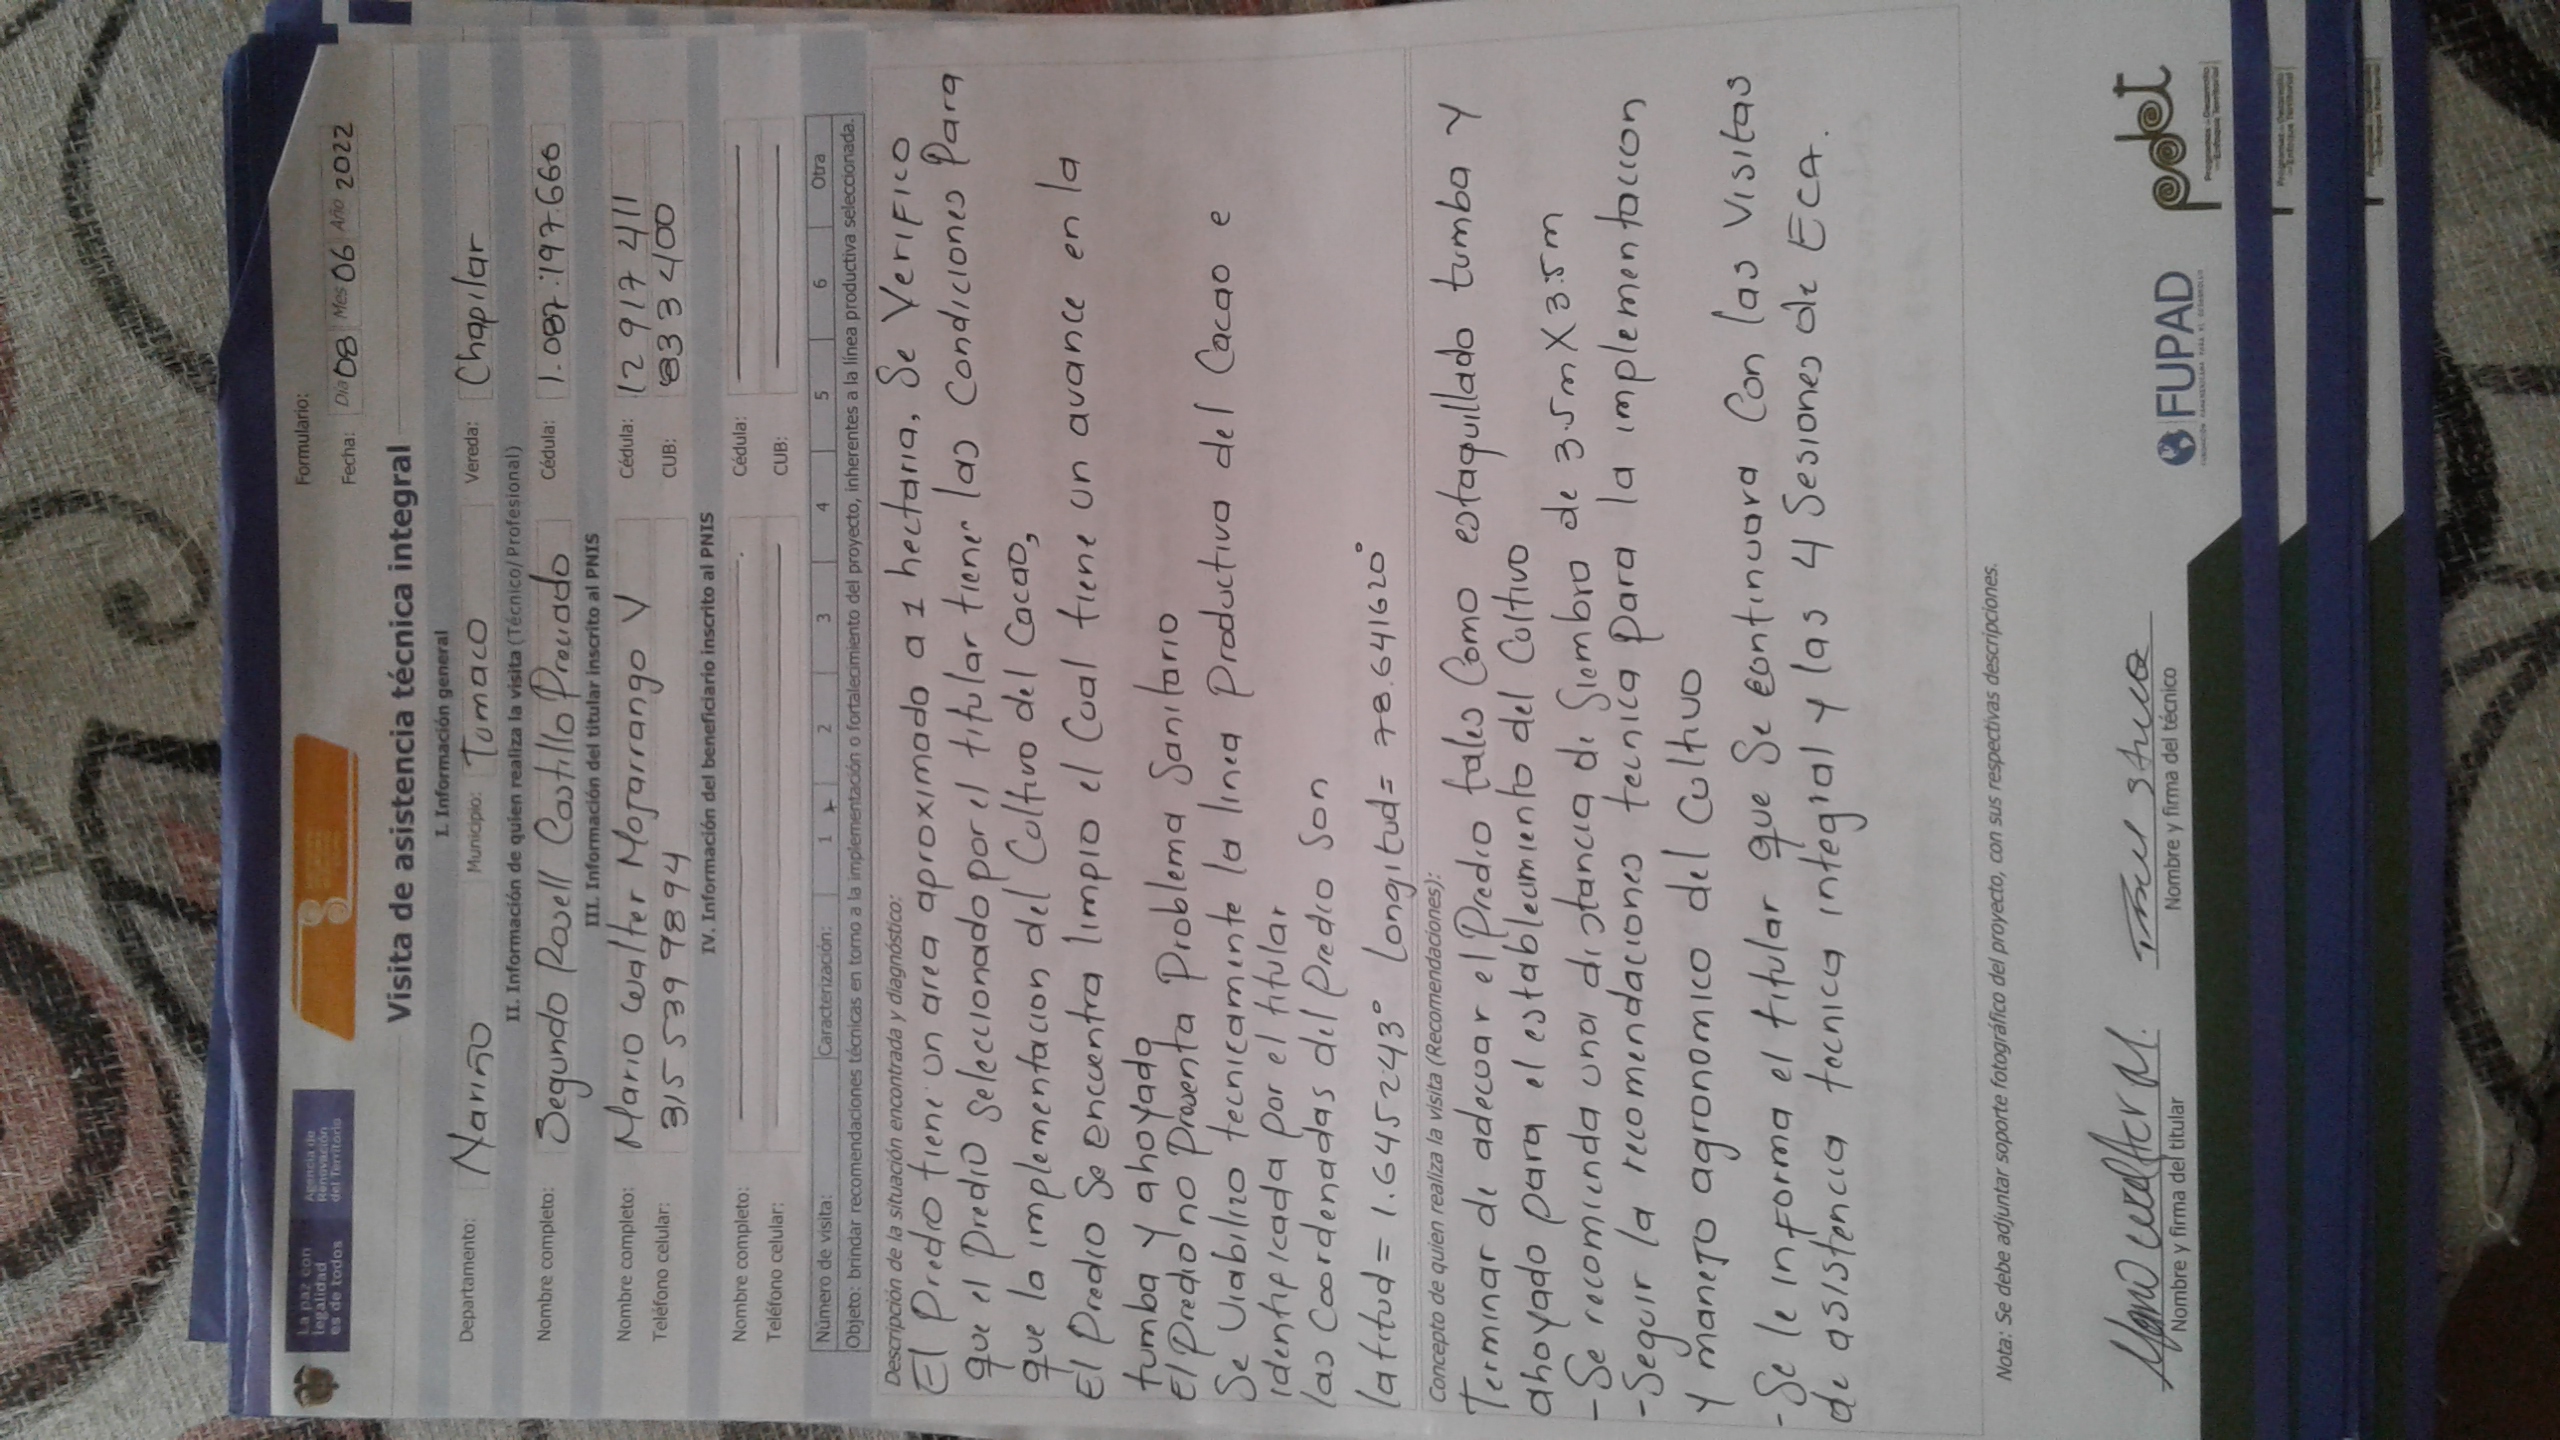 La paz con
legalidad
es de todos
Agencia de
Renovación
del Territorio
Formulario:
Fecha: Día 08 Mes 06 Año 2022
Visita de asistencia técnica integral
I. Información general
Departamento: Nariño Municipio: Tumaco Vereda: Chapilar
II. Información de quien realiza la visita (Técnico/Profesional)
Nombre completo: Segundo Rosell Castillo Preciado Cédula: 1.087.197.666
III. Información del titular inscrito al PNIS
Nombre completo: Mario Walter Mojarrango V Cédula: 12 917 411
Teléfono celular: 315 539 9894 CUB: 833400
IV. Información del beneficiario inscrito al PNIS
Nombre completo: Cédula:
Teléfono celular: CUB:
Número de visita: Caracterización: 1 x 2 3 4 5 6 Otra
Objeto: brindar recomendaciones técnicas en torno a la implementación o fortalecimiento del proyecto, inherentes a la línea productiva seleccionada.
Descripción de la situación encontrada y diagnóstico:
El Predio tiene un area aproximado a 1 hectaria, Se Verifico
que el Predio Seleccionado por el titular tiene las Condiciones Para
que la implementacion del Cultivo del Cacao,
El Predio Se encuentra limpio el Cual tiene un avance en la
tumba y ahoyado
El Predio no Presenta Problema Sanitario
Se Viabilizo tecnicamente la linea Productiva del Cacao e
identificada por el titular
las Coordenadas del Predio Son
latitud = 1.645243° longitud = 78.641620°
Concepto de quien realiza la visita (Recomendaciones):
Terminar de adecuar el Predio tales Como estaquillado tumba y
ahoyado para el establecimiento del Cultivo
- Se recomienda una distancia de Siembro de 3.5m X 3.5m
- Seguir la recomendaciones tecnica Para la implementaccion
y manejo agronomico del Cultivo
- Se le informa el titular que Se continuara Con las Visitas
de asistencia tecnica integral y las 4 Sesiones de ECA.
Nota: Se debe adjuntar soporte fotográfico del proyecto, con sus respectivas descripciones.
Nombre y firma del titular
Nombre y firma del técnico
FUPAD
pdet